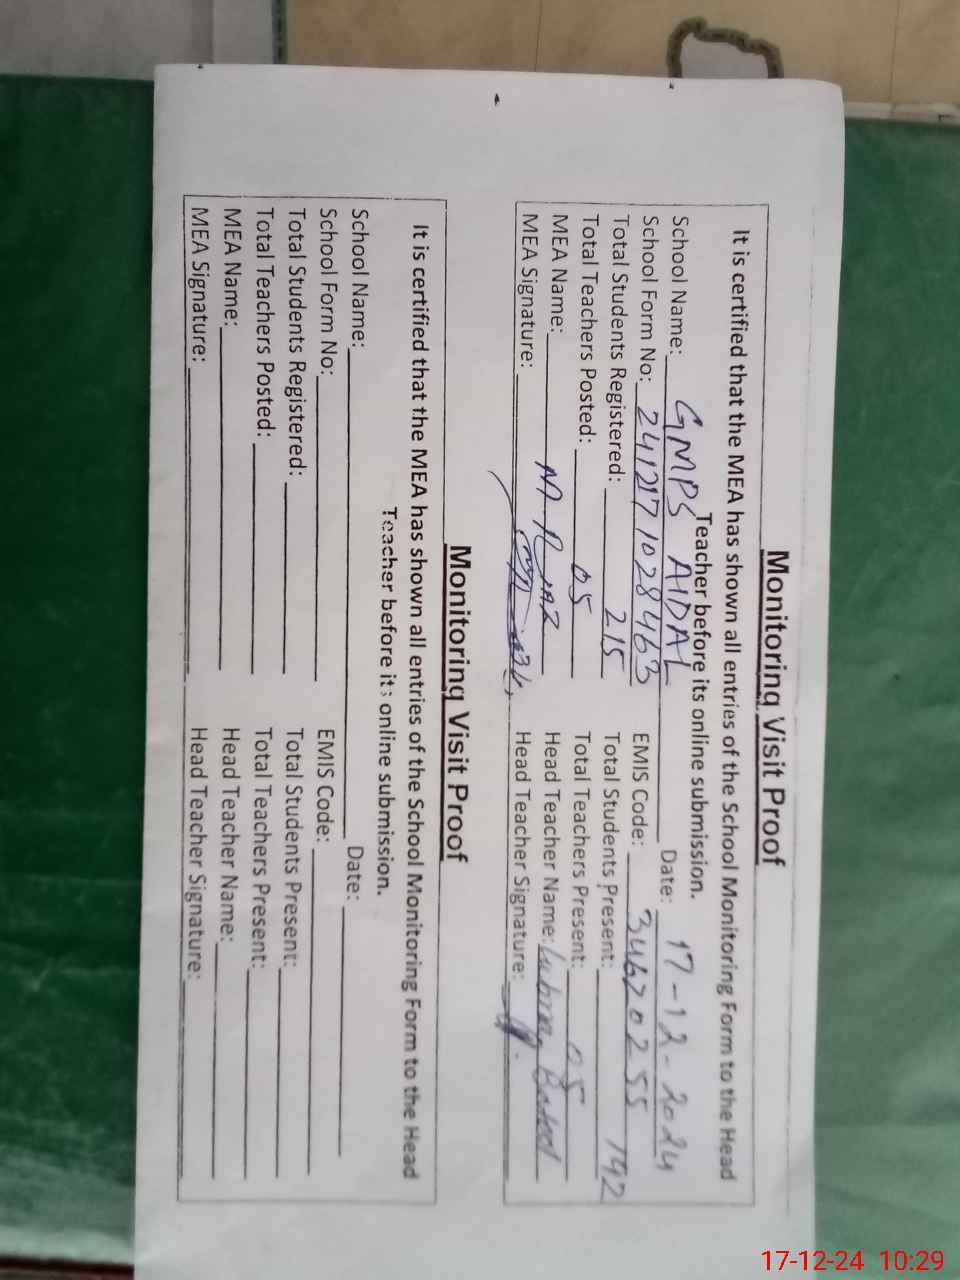 Monitoring Visit Proof
It is certified that the MEA has shown all entries of the School Monitoring Form to the Head
Teacher before its online submission.
School Name: GMPS AIDAL Date: 17-12-2024
School Form No: 241217 1028463 EMIS Code: 34620255
Total Students Registered: 215 Total Students Present: 192
Total Teachers Posted: 05 Total Teachers Present: 05
MEA Name: M Head Teacher Name: Lubna
MEA Signature: Head Teacher Signature:
Monitoring Visit Proof
It is certified that the MEA has shown all entries of the School Monitoring Form to the Head
Teacher before its online submission.
School Name: Date:
School Form No: EMIS Code:
Total Students Registered: Total Students Present:
Total Teachers Posted: Total Teachers Present:
MEA Name: Head Teacher Name:
MEA Signature: Head Teacher Signature:
17-12-24 10:29